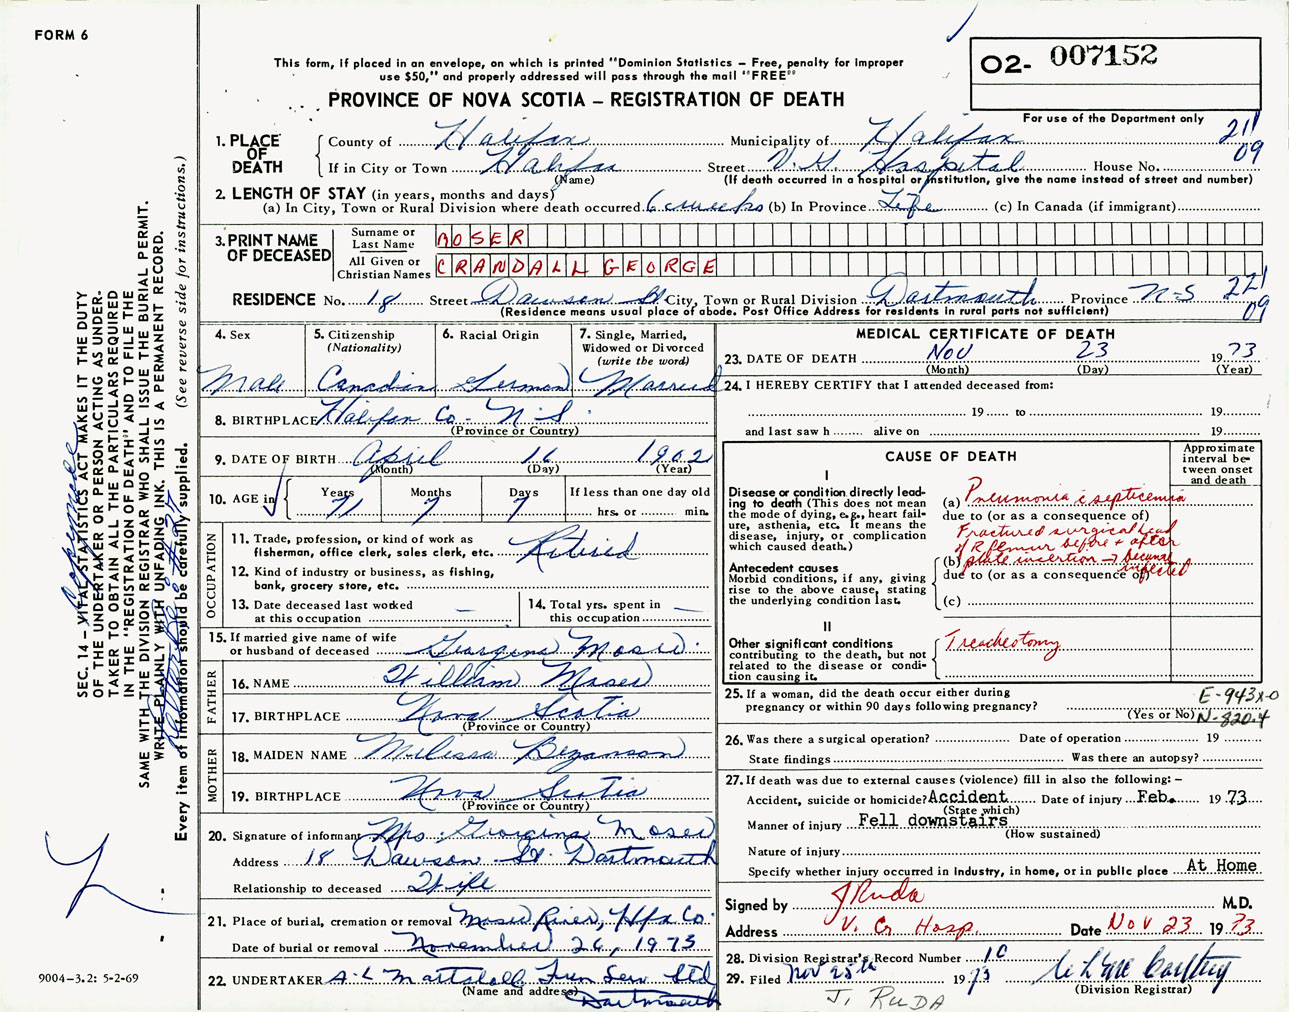 FORM 6
O2- 007152
This form, if placed in an envelope, on which is printed "Dominion Statistics – Free, penalty for improper
use $50," and properly addressed will pass through the mail "FREE"
PROVINCE OF NOVA SCOTIA – REGISTRATION OF DEATH
For use of the Department only
211
09
1. PLACE OF DEATH
County of Halifax Municipality of Halifax
If in City or Town Halifax Street V. G. Hospital House No.
(Name) (If death occurred in a hospital or institution, give the name instead of street and number)
2. LENGTH OF STAY (in years, months and days)
(a) In City, Town or Rural Division where death occurred 6 weeks (b) In Province Life (c) In Canada (if immigrant)
3. PRINT NAME OF DECEASED
Surname or Last Name MOSER
All Given or Christian Names CRANDALL GEORGE
RESIDENCE No. 18 Street Dawson St City, Town or Rural Division Dartmouth Province N-S
221
09
(Residence means usual place of abode. Post Office Address for residents in rural parts not sufficient)
4. Sex
Male
5. Citizenship
(Nationality)
Canadian
6. Racial Origin
German
7. Single, Married,
Widowed or Divorced
(write the word)
Married
8. BIRTHPLACE Halifax Co. N.S.
(Province or Country)
9. DATE OF BIRTH April 16 1902
(Month) (Day) (Year)
10. AGE in
Years Months Days If less than one day old
71 7 7 hrs. or min.
OCCUPATION
11. Trade, profession, or kind of work as
fisherman, office clerk, sales clerk, etc. Retired
12. Kind of industry or business, as fishing,
bank, grocery store, etc.
13. Date deceased last worked
at this occupation —
14. Total yrs. spent in
this occupation —
15. If married give name of wife
or husband of deceased Georgina Moser
FATHER
16. NAME William Moser
17. BIRTHPLACE Nova Scotia
(Province or Country)
MOTHER
18. MAIDEN NAME Melissa Bezanson
19. BIRTHPLACE Nova Scotia
(Province or Country)
20. Signature of informant Mrs. Georgina Moser
Address 18 Dawson St. Dartmouth
Relationship to deceased Wife
21. Place of burial, cremation or removal Moser River, Hfx Co.
Date of burial or removal November 26, 1973
22. UNDERTAKER A-L Mattatall Fun Serv Ltd
(Name and address) Dartmouth
MEDICAL CERTIFICATE OF DEATH
23. DATE OF DEATH Nov 23 1973
(Month) (Day) (Year)
24. I HEREBY CERTIFY that I attended deceased from:
19 to 19
and last saw h alive on 19
CAUSE OF DEATH
Approximate
interval be-
tween onset
and death
I
Disease or condition directly lead-
ing to death (This does not mean
the mode of dying, e.g., heart fail-
ure, asthenia, etc. It means the
disease, injury, or complication
which caused death.)
(a) Pneumonia c septicemia
due to (or as a consequence of)
Fractured surgical head
of R femur before + after
(b) plate insertion → became
infected
due to (or as a consequence of)
(c)
Antecedent causes
Morbid conditions, if any, giving
rise to the above cause, stating
the underlying condition last.
II
Other significant conditions
contributing to the death, but not
related to the disease or condi-
tion causing it.
Tracheotomy
25. If a woman, did the death occur either during
pregnancy or within 90 days following pregnancy?
(Yes or No)
E-943x-0
N-820.4
26. Was there a surgical operation? Date of operation 19
State findings Was there an autopsy?
27. If death was due to external causes (violence) fill in also the following: –
Accident, suicide or homicide? Accident Date of injury Feb. 1973
(State which)
Manner of injury Fell downstairs
(How sustained)
Nature of injury
Specify whether injury occurred in industry, in home, or in public place At Home
Signed by J Ruda M.D.
Address V. G Hosp. Date Nov 23 1973
28. Division Registrar's Record Number
29. Filed Nov 25th 1973
(Division Registrar)
J. RUDA
SEC. 14 – VITAL STATISTICS ACT MAKES IT THE DUTY
OF THE UNDERTAKER OR PERSON ACTING AS UNDER-
TAKER TO OBTAIN ALL THE PARTICULARS REQUIRED
IN THE "REGISTRATION OF DEATH" AND TO FILE THE
SAME WITH THE DIVISION REGISTRAR WHO SHALL ISSUE THE BURIAL PERMIT.
WRITE PLAINLY WITH UNFADING INK. THIS IS A PERMANENT RECORD.
Every item of information should be carefully supplied. (See reverse side for instructions.)
9004-3.2: 5-2-69